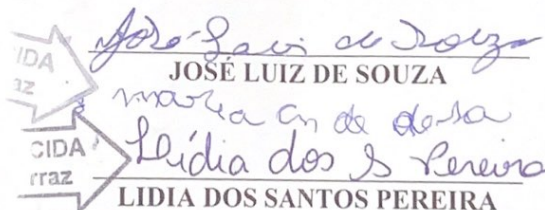 José Luiz de Souza
JOSÉ LUIZ DE SOUZA
CIDA
Lídia dos S Pereira
rraz
LIDIA DOS SANTOS PEREIRA